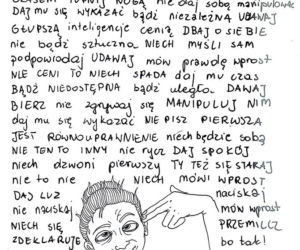 CZASEM TUPNIJ NOGĄ nie daj sobą manipulować
DAJ MU SIĘ WYKAZAĆ bądź niezależna UDAWAJ
GŁUPSZĄ inteligencję cenią DBAJ O SIEBIE
nie bądź sztuczna NIECH MYŚLI SAM
podpowiadaj UDAWAJ mów prawdę wprost
NIE CENI TO NIECH SPADA daj mu czas
BĄDŹ NIEDOSTĘPNA bądź uległa DAWAJ
BIERZ nie zgrywaj się MANIPULUJ NIM
daj mu się wykazać NIE PISZ PIERWSZA
JEST RÓWNOUPRAWNIENIE niech będzie sobą
NIE TEN TO INNY nie rycz DAJ SPOKÓJ
niech dzwoni pierwszy TY TEŻ SIĘ STARAJ
nie to nie NIECH MÓWI WPROST
DAJ LUZ naciskaj
nie naciskaj mów wprost
NIECH SIĘ PRZEMILCZ
ZDEKLARUJE bo tak!